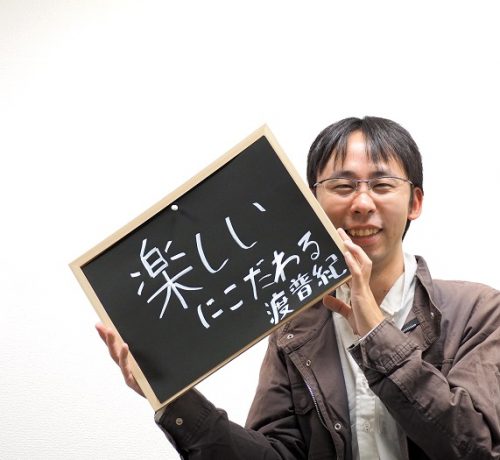 楽しい
にこだわる
渡普紀